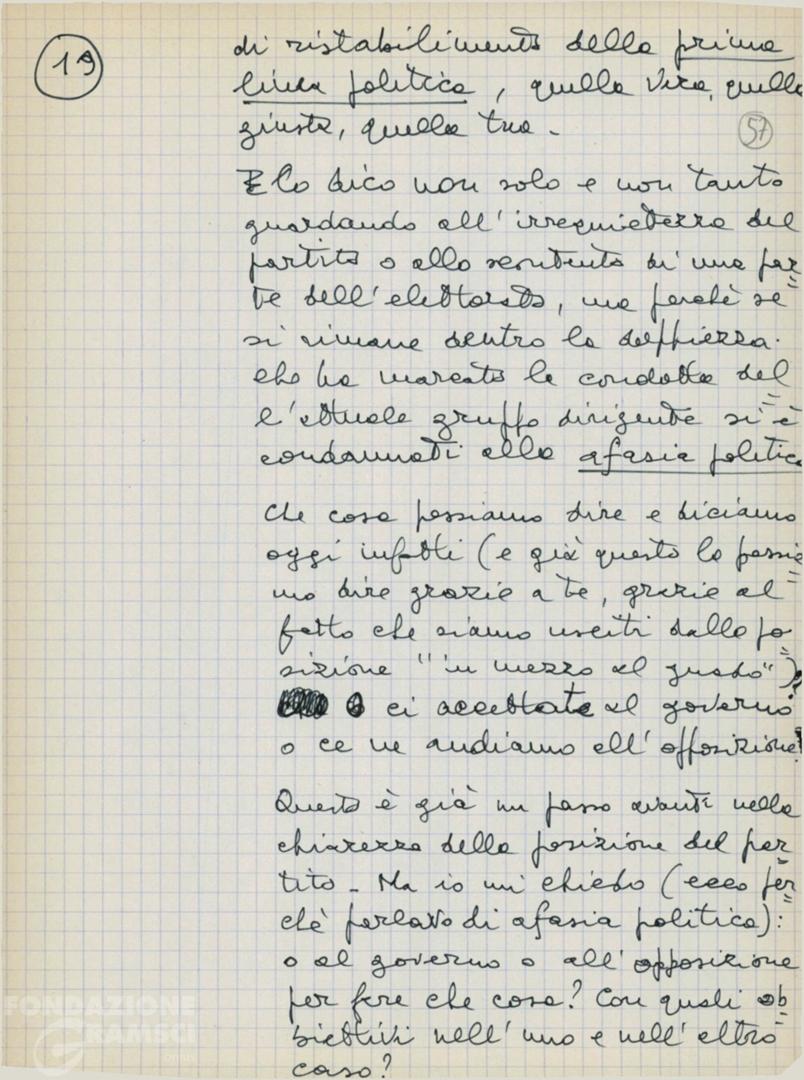 19
di ristabilimento della prima
linea politica, quella vera, quella
giusta, quella tua.
57
E lo dico non solo e non tanto
guardando all'irrequietezza del
partito o allo scontento di una par=
te dell'elettorato, ma perchè se
si rimane dentro la doppiezza
che ha marcato la condotta del=
l'attuale gruppo dirigente si è
condannati alla afasia politica
Che cosa possiamo dire e diciamo
oggi infatti (e già questo lo possia=
mo dire grazie a te, grazie al
fatto che siamo usciti dalla po=
sizione "in mezzo al guado")?
o ci accettate al governo
o ce ne andiamo all'opposizione!
Questo è già un passo avanti nella
chiarezza della posizione del par=
tito. Ma io mi chiedo (ecco per=
chè parlavo di afasia politica):
o al governo o all'opposizione
per fare che cosa? Con quali ob=
biettivi nell'uno e nell'altro
caso?
FONDAZIONE
GRAMSCI